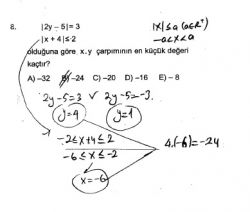 8. |2y – 5| = 3 |x| ≤ a (a∈R⁺)
|x + 4| ≤ 2 -a<x<a
olduğuna göre x.y çarpımının en küçük değeri
kaçtır?
A) –32 B) –24 C) –20 D) –16 E) – 8
2y-5=3 ∨ 2y-5=-3
y=4 y=1
-2≤x+4≤2
-6≤x≤-2 4.(-6)=-24
x=-6